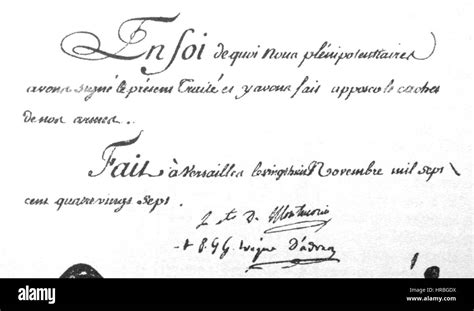 En foi de quoi Nous plénipotentiaires
avons signé le présent Traité et y avons fait apposer le cachet
de nos armes.
Fait à Versailles le vingt huit Novembre mil sept
cent quatre vingt sept.
Le Cte De Montmorin
+ P. J. G. Evêque D'adran
alamy
Image ID: HRBGDX
www.alamy.com